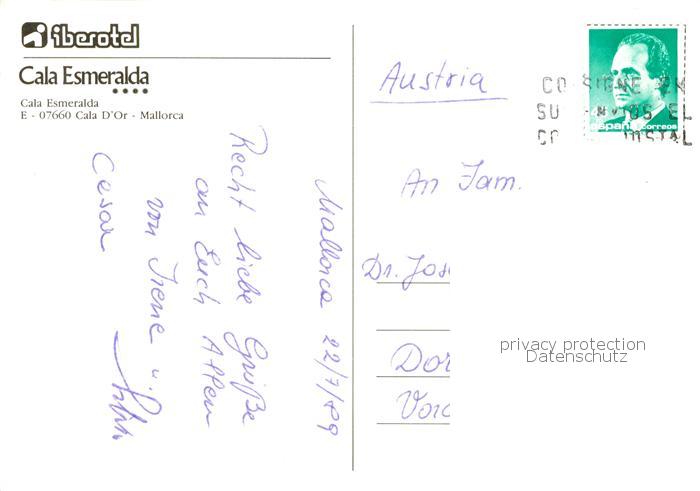 iberotel
Cala Esmeralda
Cala Esmeralda
E - 07660 Cala D'Or - Mallorca
Mallorca 22/7/89
Recht liebe Grüße
an Euch Allen
von Irene u.
Cesar
Austria
españa correos
CO SIGNE EN
SU ENVIOS EL
CO POSTAL
An Fam.
Dr. Jos
Dor
Vor
privacy protection
Datenschutz